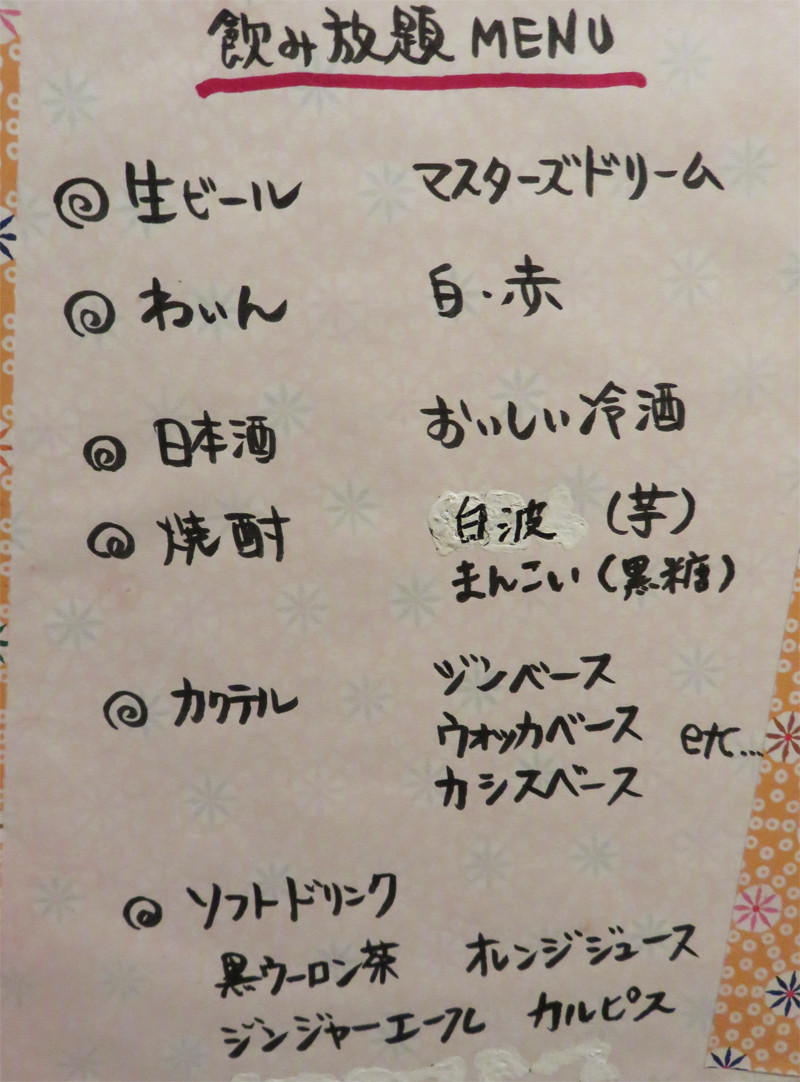 飲み放題 MENU
生ビール マスターズドリーム
わいん 白・赤
日本酒 おいしい冷酒
焼酎 白波 (芋)
まんこい (黒糖)
カクテル ジンベース
ウォッカベース etc...
カシスベース
ソフトドリンク
黒ウーロン茶 オレンジジュース
ジンジャーエール カルピス